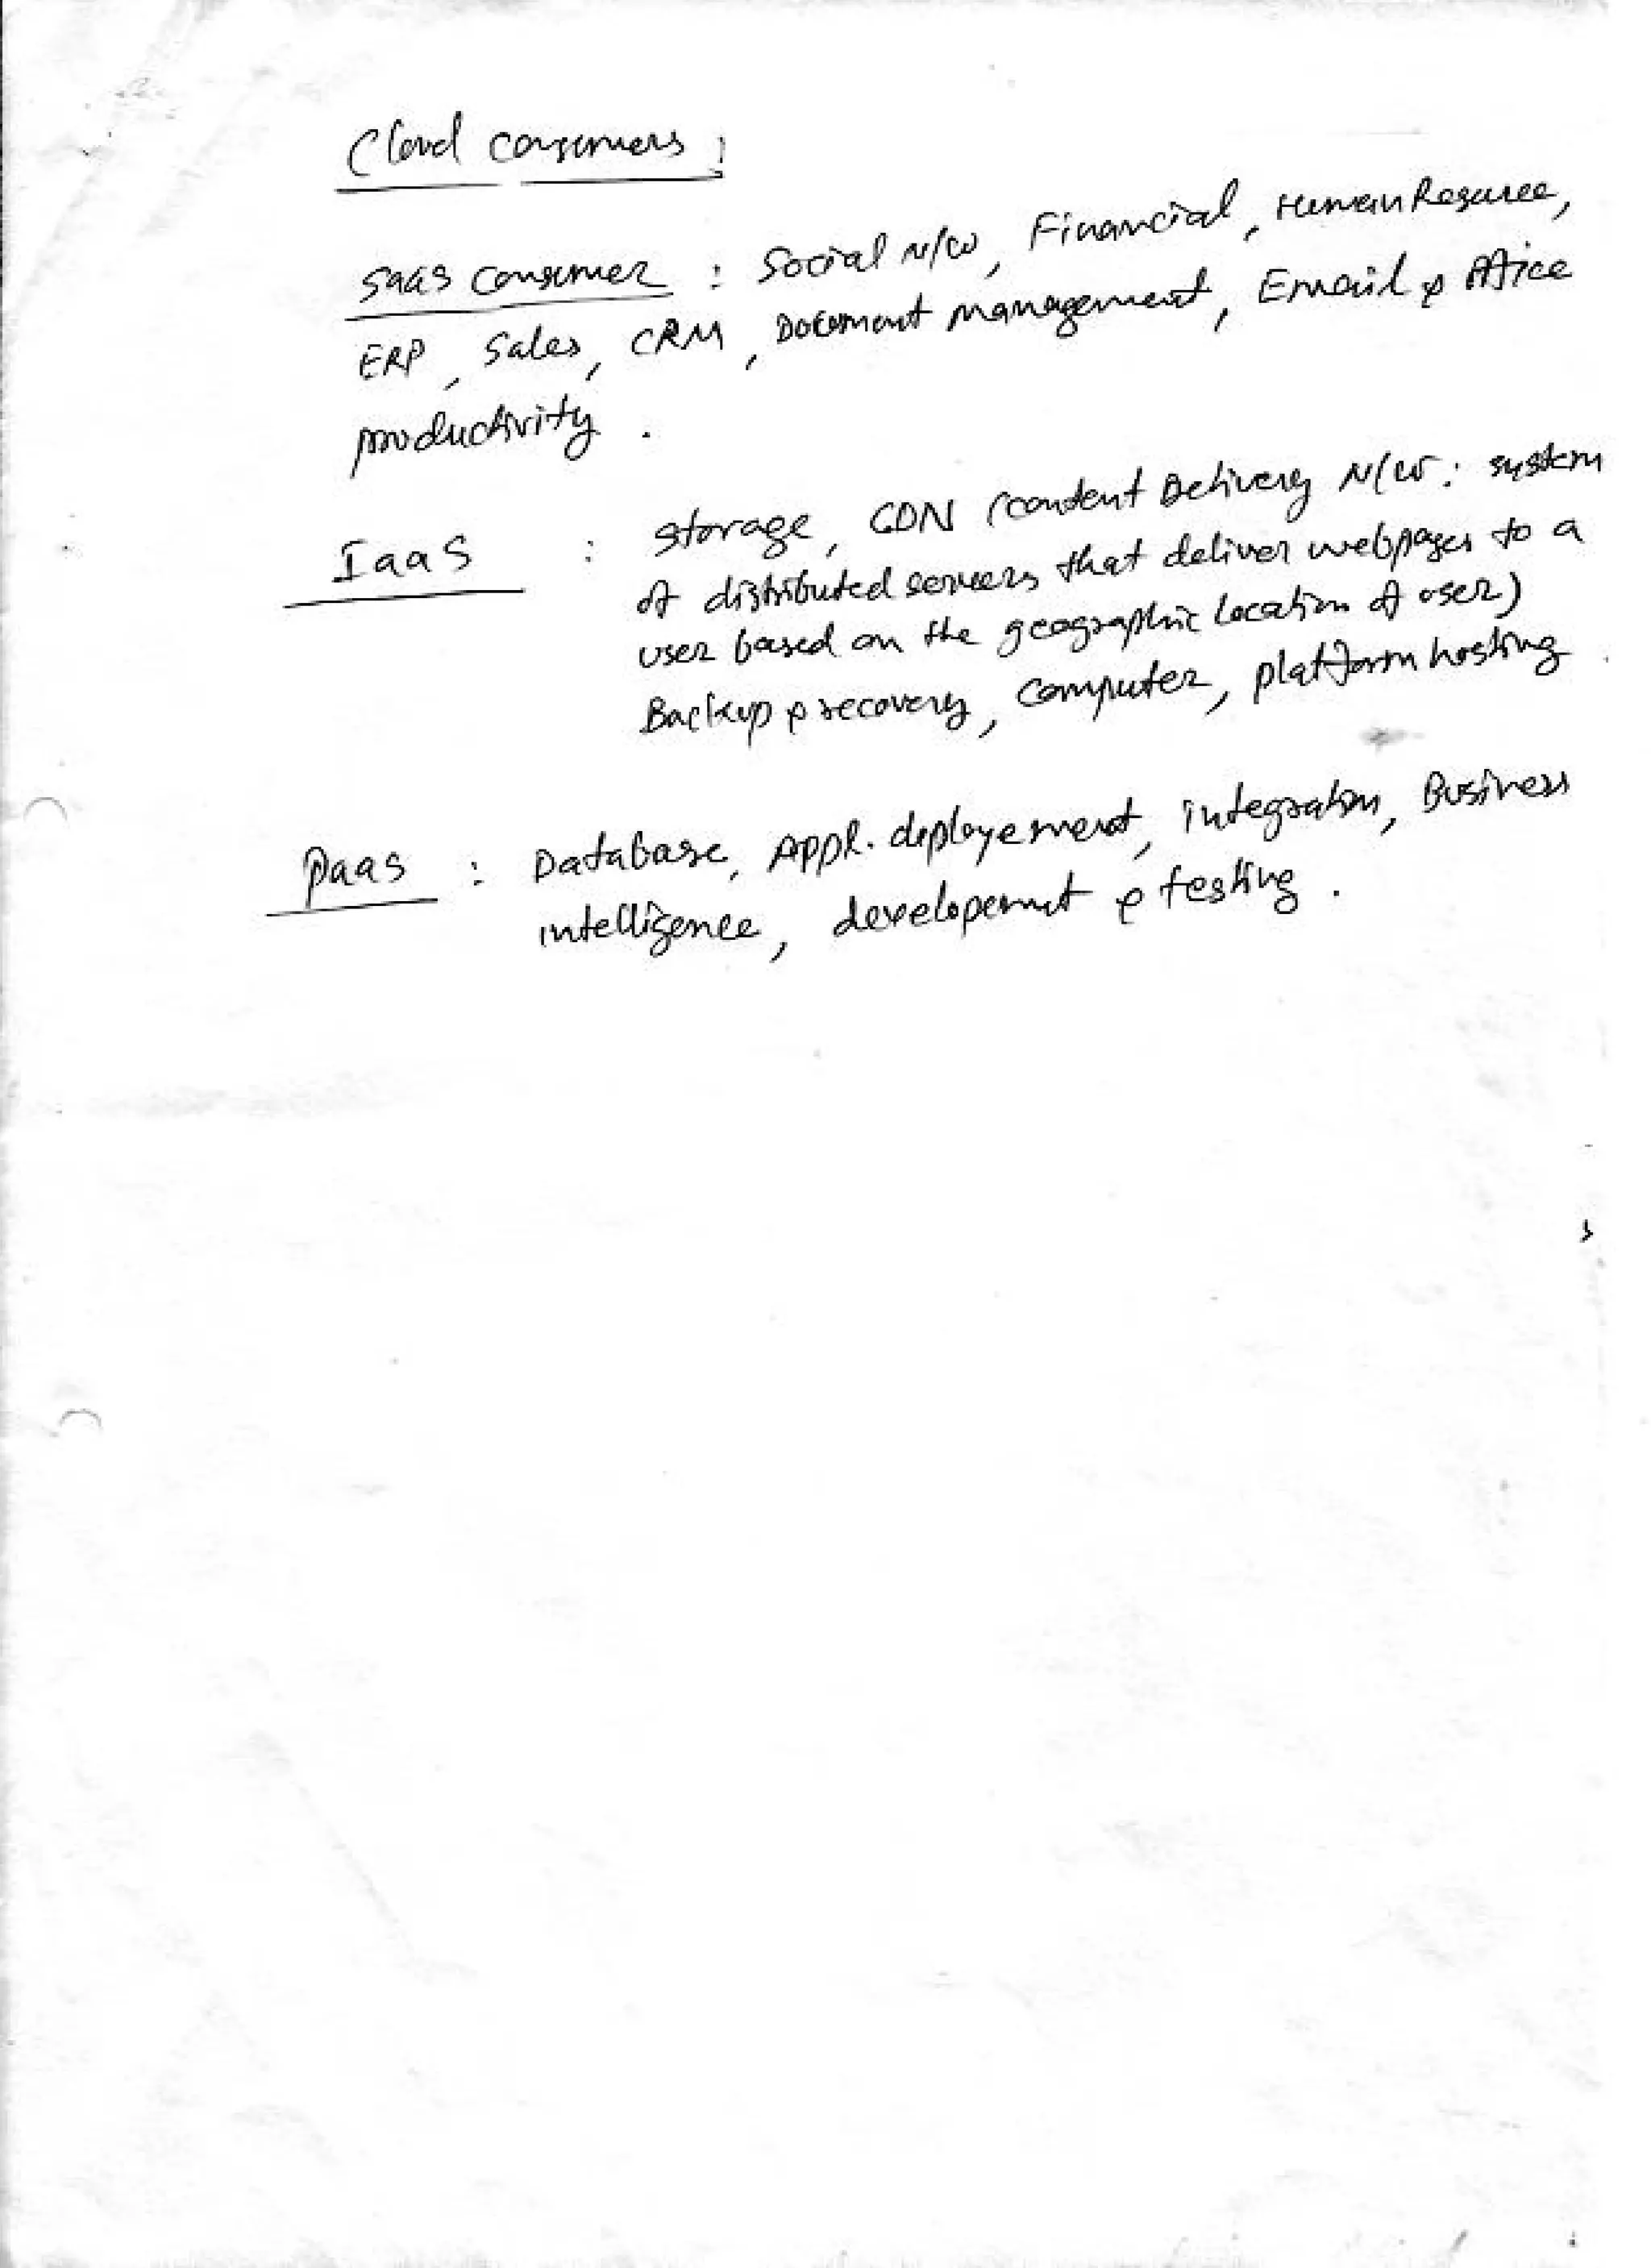 Cloud consumers :
SaaS consumer : Social N/w, Financial, Human Resource,
ERP, Sales, CRM, Document Management, Email & Office
productivity .
IaaS : storage, CDN (content Delivery N/w : system
of distributed servers that deliver webpages to a
user based on the geographic location of user)
Backup & recovery, computer, platform hosting .
PaaS : Database, Appl. deployement, integration, Business
intelligence, developemnt & testing .